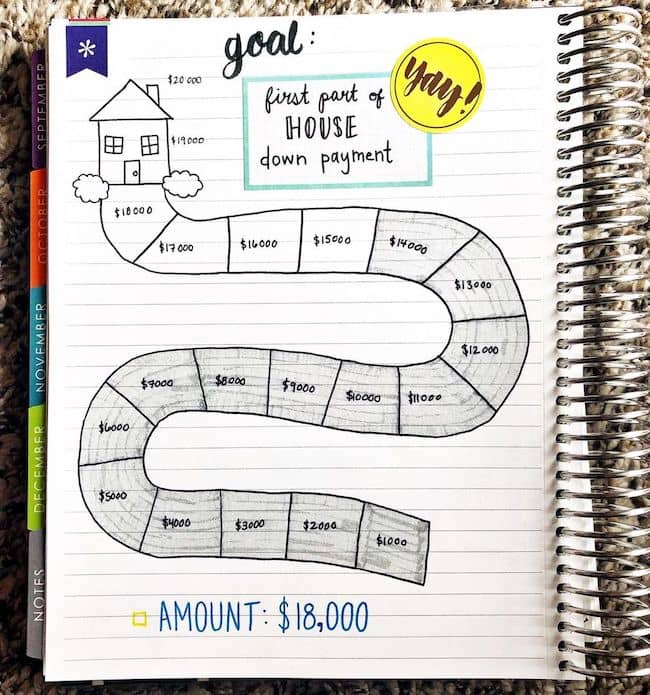 goal:
first part of
HOUSE
down payment
Yay!
*
$20000
$19000
$18000
$17000
$16000
$15000
$14000
$13000
$12000
$11000
$10000
$9000
$8000
$7000
$6000
$5000
$4000
$3000
$2000
$1000
AMOUNT: $18,000
SEPTEMBER
OCTOBER
NOVEMBER
DECEMBER
NOTES